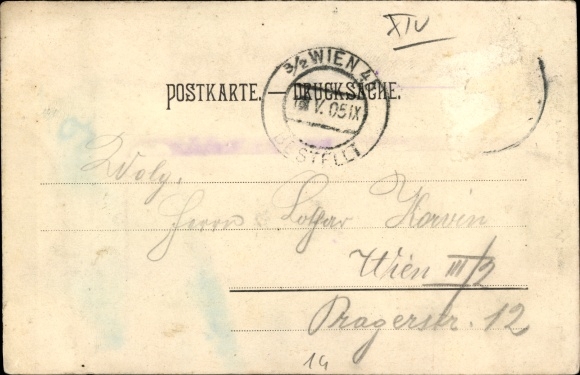 XIV
3/2 WIEN 4
V. 05 IX
BESTELLT
POSTKARTE. — DRUCKSACHE.
Herrn Lothar Korvin
Wien III/2
Pragerstr. 12
14